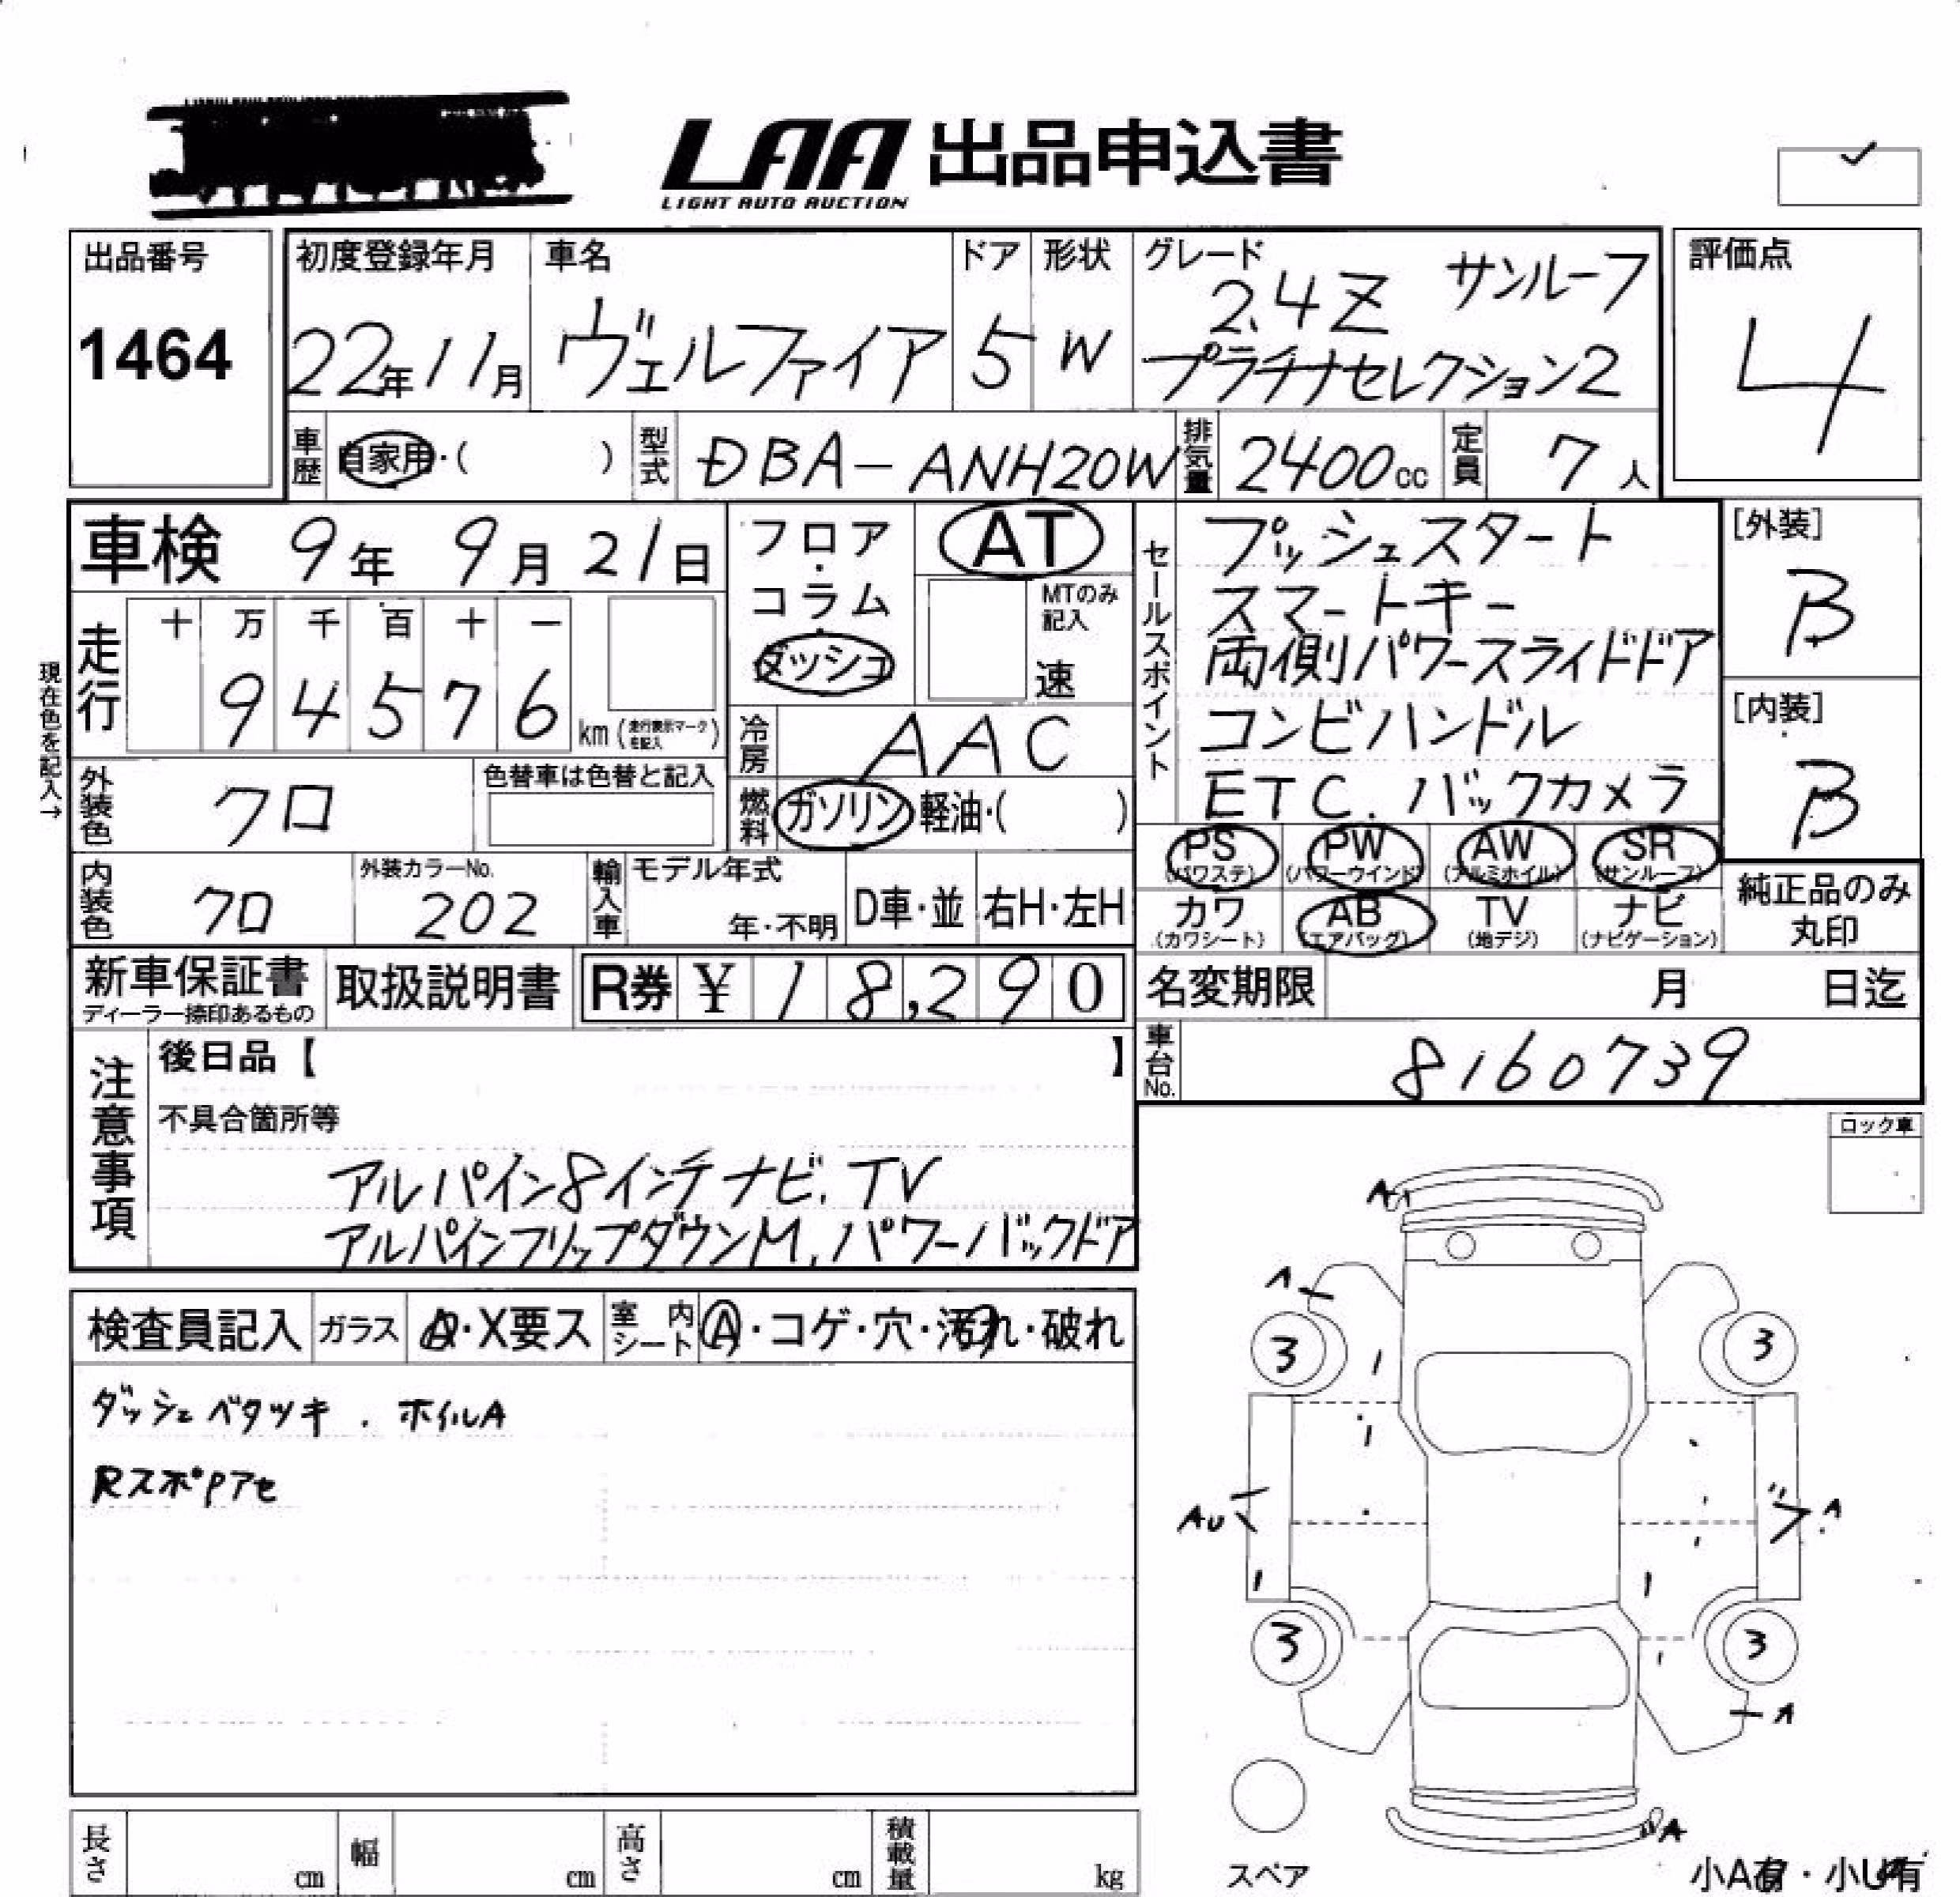 LAA 出品申込書
LIGHT AUTO AUCTION
出品番号
1464
初度登録年月
22年11月
車名
ヴェルファイア
ドア
5
形状
W
グレード
2.4Z サンルーフ
プラチナセレクション2
評価点
4
車歴
自家用・( )
型式
DBA-ANH20W
排気量
2400cc
定員
7人
車検 9年 9月 21日
現在色を記入→
走行
十 万 千 百 十 一
9 4 5 7 6 km(走行表示マークを記入)
フロア・コラム・ダッシュ
AT
MTのみ記入
速
冷房
AAC
燃料
ガソリン・軽油・( )
外装色
クロ
色替車は色替と記入
内装色
クロ
外装カラーNo.
202
輸入車
モデル年式
年・不明
D車・並
右H・左H
セールスポイント
プッシュスタート
スマートキー
両側パワースライドドア
コンビハンドル
ETC. バックカメラ
[外装]
B
[内装]
B
PS (パワステ)
PW (パワーウインド)
AW (アルミホイル)
SR (サンルーフ)
カワ (カワシート)
AB (エアバッグ)
TV (地デジ)
ナビ (ナビゲーション)
純正品のみ
丸印
新車保証書
ディーラー捺印あるもの
取扱説明書
R券 ¥ 18,290
名変期限 月 日迄
車台No.
8160739
注意事項
後日品【 】
不具合箇所等
アルパイン8インチナビ. TV
アルパインフリップダウンM. パワーバックドア
ロック車
検査員記入
ガラス
A・X要ス
室内シート
A・コゲ・穴・汚れ・破れ
ダッシュベタツキ . ホイルA
RスポPアセ
A
A
3
3
AU
A
3
3
A
A
スペア
小A有・小U有
長さ cm
幅 cm
高さ cm
積載量 kg